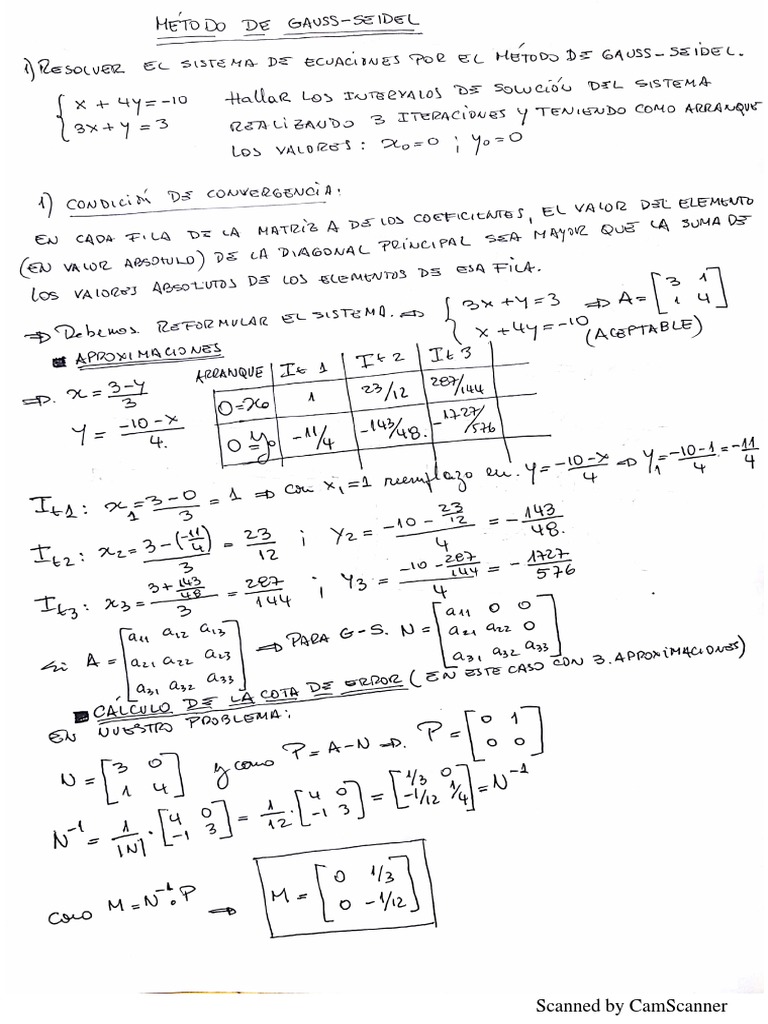 MÉTODO DE GAUSS-SEIDEL
1) RESOLVER EL SISTEMA DE ECUACIONES POR EL MÉTODO DE GAUSS-SEIDEL.
{ x + 4y = -10 Hallar LOS INTERVALOS DE SOLUCIÓN DEL SISTEMA
{ 3x + y = 3 REALIZANDO 3 ITERACIONES Y TENIENDO COMO ARRANQUE
LOS VALORES: x₀=0 ; y₀=0
1) CONDICIÓN DE CONVERGENCIA:
EN CADA FILA DE LA MATRIZ A DE LOS COEFICIENTES, EL VALOR DEL ELEMENTO
(EN VALOR ABSOLULO) DE LA DIAGONAL PRINCIPAL SEA MAYOR QUE LA SUMA DE
LOS VALORES ABSOLUTOS DE LOS ELEMENTOS DE ESA FILA.
⇒ Debemos REFORMULAR EL SISTEMA. ⇒ { 3x + y = 3 ⇒ A = [3 1
{ x + 4y = -10 1 4]
(ACEPTABLE)
■ APROXIMACIONES
ARRANQUE | It 1 | It 2 | It 3
⇒. x = (3-y)/3 0=x₀ | 1 | 23/12 | 287/144
y = (-10-x)/4. 0=y₀ | -11/4 | -143/48. | -1727/576
It1: x₁ = (3-0)/3 = 1 ⇒ con x₁=1 reemplazo en. y = (-10-x)/4 ⇒ y₁ = (-10-1)/4 = -11/4
It2: x₂ = (3-(-11/4))/3 = 23/12 ; y₂ = (-10 - 23/12)/4 = -143/48.
It3: x₃ = (3+143/48)/3 = 287/144 ; y₃ = (-10 - 287/144)/4 = -1727/576
Si A = [a11 a12 a13 ⇒ PARA G-S. N = [a11 0 0
a21 a22 a23 a21 a22 0
a31 a32 a33] a31 a32 a33]
■ CÁLCULO DE LA COTA DE ERROR (EN ESTE CASO CON 3. APROXIMACIONES)
EN NUESTRO PROBLEMA:
N = [3 0 y como P = A-N ⇒. P = [0 1
1 4] 0 0]
N⁻¹ = 1/|N| · [4 0 = 1/12 · [4 0 = [1/3 0 = N⁻¹
-1 3] -1 3] -1/12 1/4]
como M = N⁻¹ · P ⇒ M = [0 1/3
0 -1/12]
Scanned by CamScanner